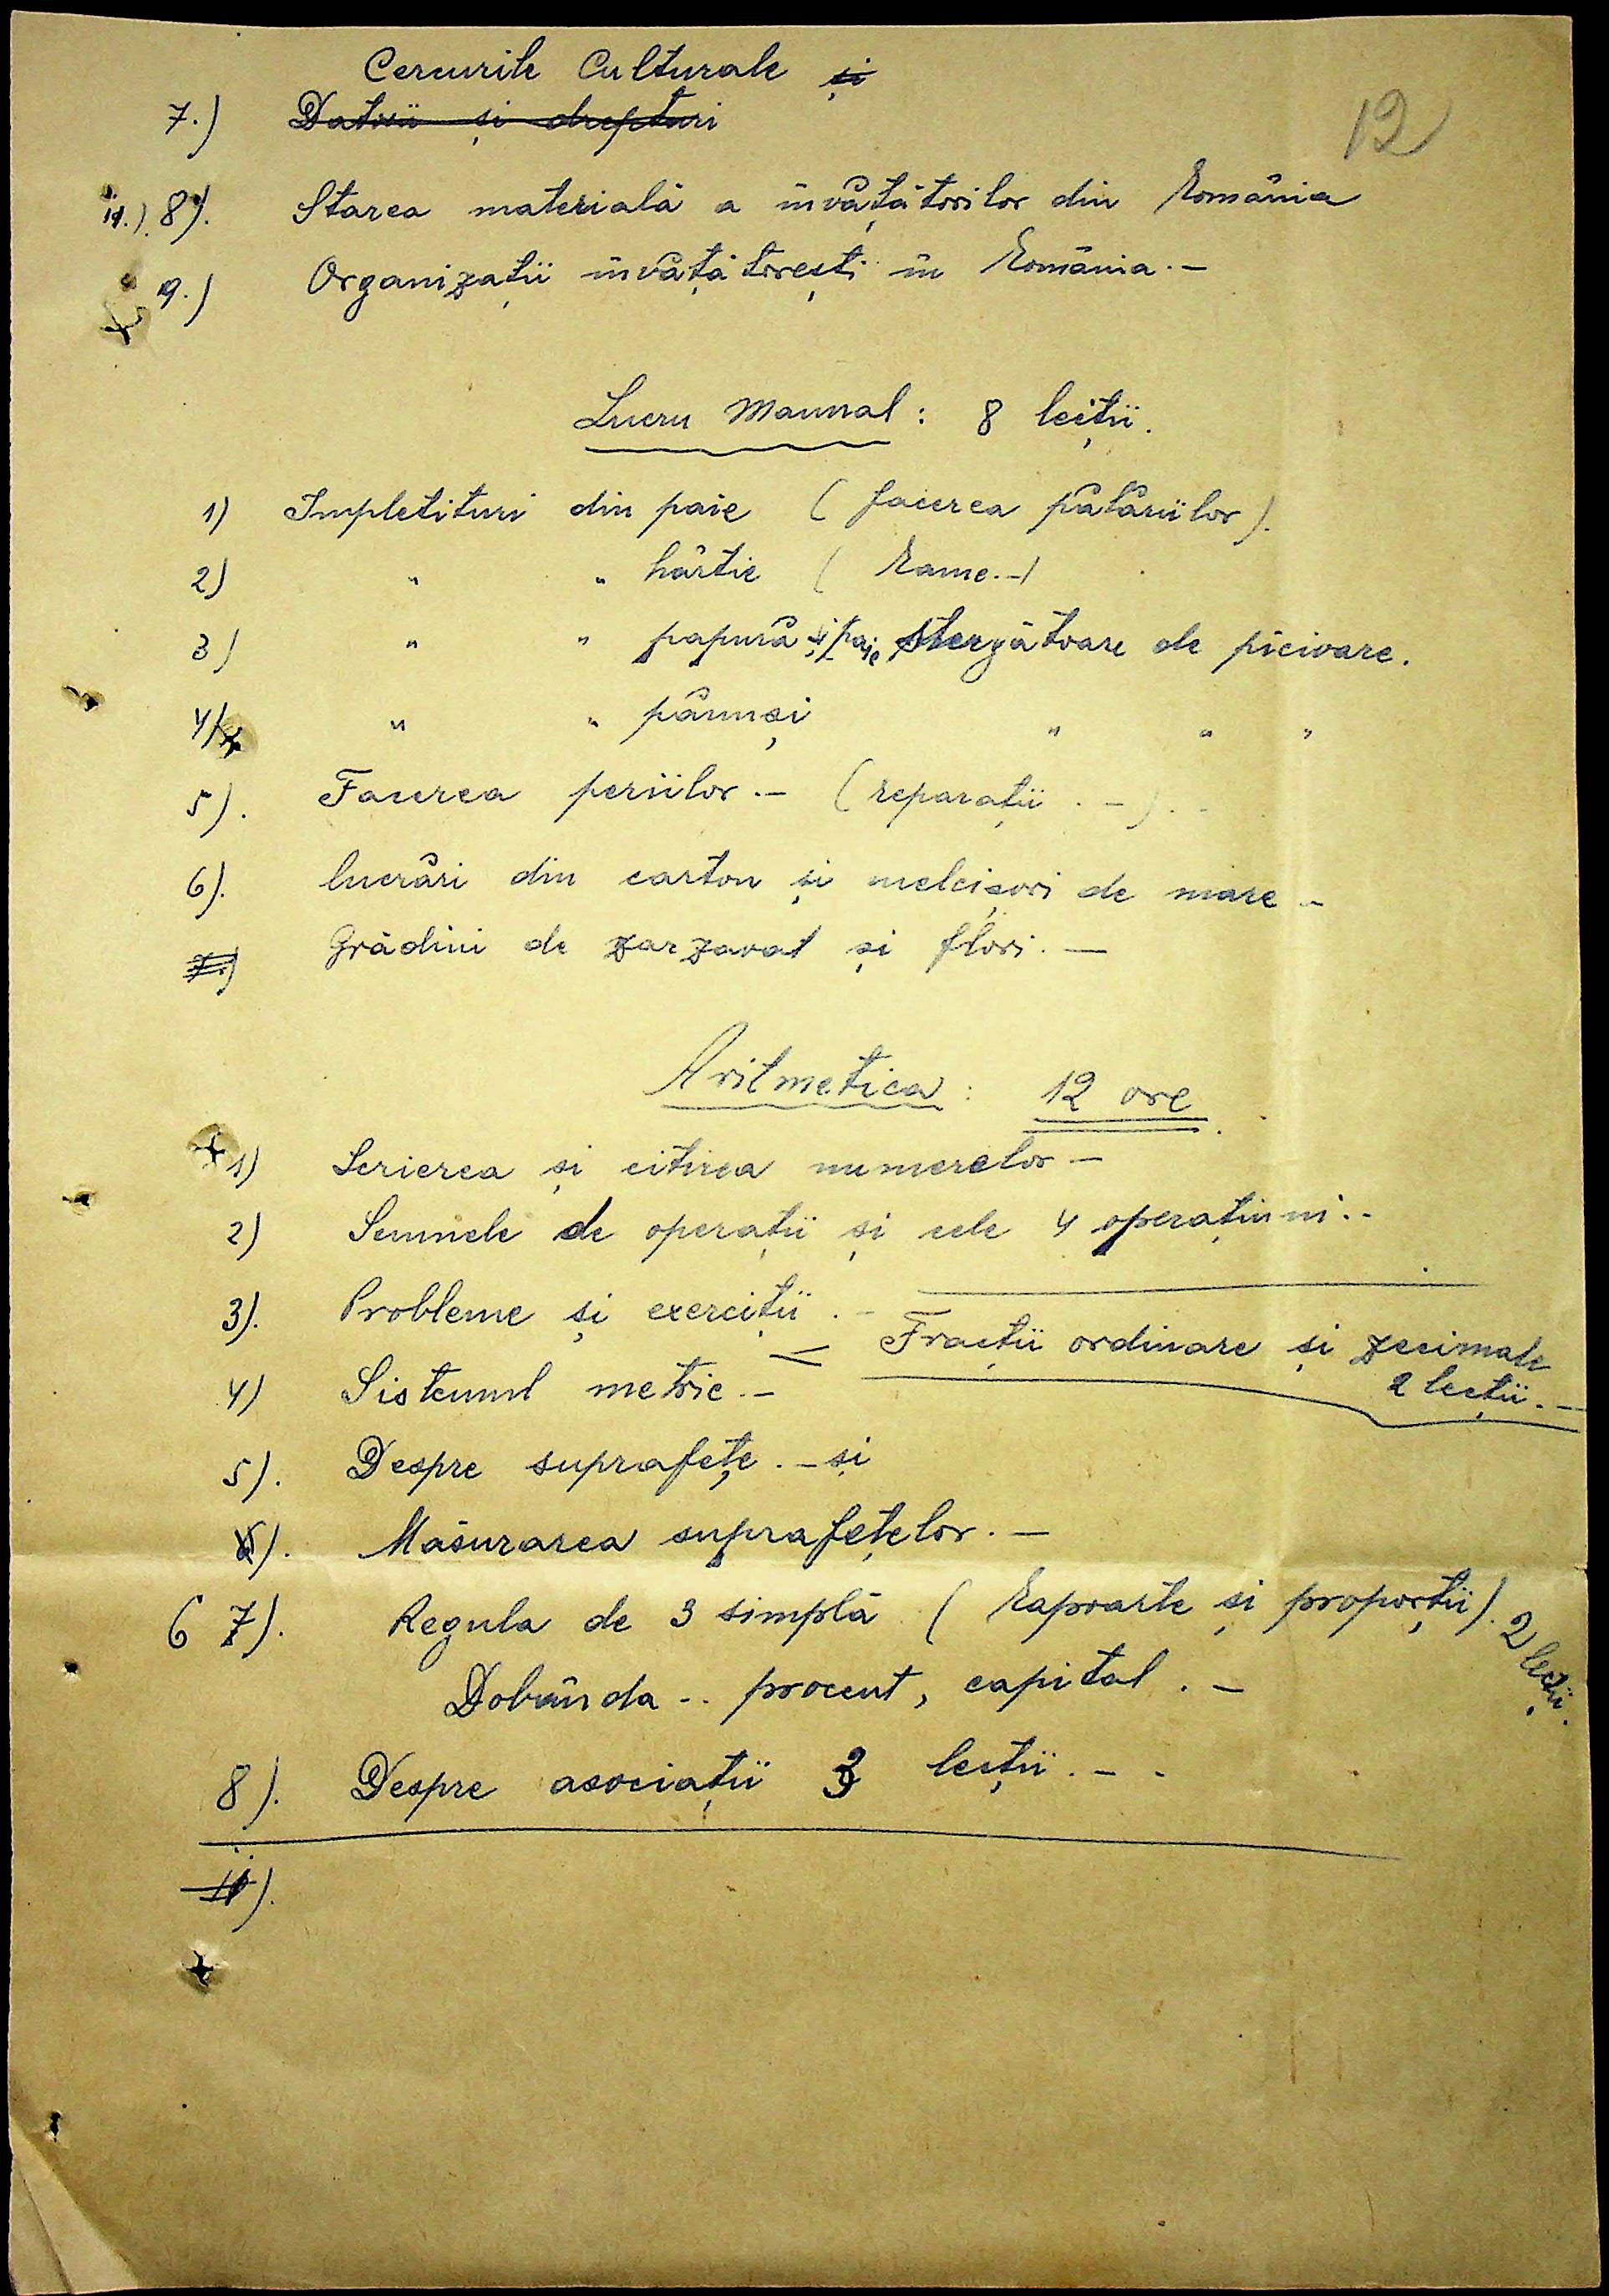 Cercurile Culturale și
12
7.) Datorii și drepturi
8). Starea materială a învățătorilor din România
9.) Organizații învățătorești în România.-
Lucru Manual: 8 lecții.
1) Impletituri din paie (facerea pălăriilor).
2) " " hârtie ( Rame.-)
3) " " papură și paie ștergătoare de picioare.
4) " " pănuși " " "
5). Facerea periilor.- (reparații.-).-
6). lucrări din carton și melcișori de mare -
7.) Grădini de zarzavat și flori.-
Aritmetica: 12 ore.
1) Scrierea și citirea numerelor -
2) Semnele de operații și cele 4 operațiuni.-
3). Probleme și exerciții.-
= Fracții ordinare și zecimale
2 lecții.-
4) Sistemul metric.-
5). Despre suprafețe.- și
Măsurarea suprafețelor.-
6 7). Regula de 3 simplă (Rapoarte și proporții). 2 lecții.
Dobânda -. procent, capital.-
8). Despre asociații 3 lecții.- -